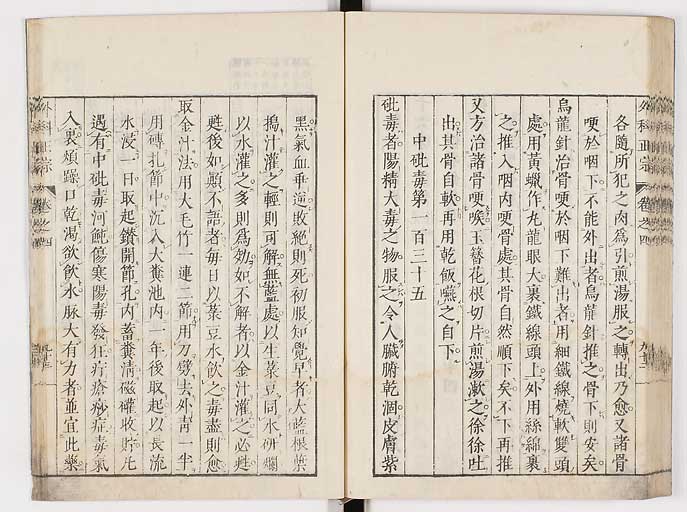 外科正宗 卷之四
各隨所犯之肉爲引煎湯服之轉出乃愈又諸骨
哽於咽下不能外出者烏龍針推之骨下則安矣
烏龍針治骨哽於咽下難出者用細鐵線燒軟雙頭
處用黃蠟作丸龍眼大裹鐵線頭上外用絲綿裹
之推入咽内哽骨處其骨自然順下矣不下再推
又方治諸骨哽喉玉簪花根切片煎湯漱之徐徐吐
出其骨自軟再用乾飯嚥之自下
中砒毒第一百三十五
砒毒者陽精大毒之物服之令人臟腑乾涸皮膚紫
黑氣血垂逆敗絶則死初服知覺早者大藍根葉
搗汁灌之輕則可解無藍處以生菉豆同水研爛
以水灌之多則爲効如不解者以金汁灌之必甦
甦後如顚不語者每日以菉豆水飲之毒盡則愈
取金汁法用大毛竹一連二節用刀劈去外青一半
用磚扎節中沉入大糞池内一年後取起以長流
水浸一日取起鑚開節孔内蓄糞清磁確收貯凡
遇有中砒毒河魨傷寒陽毒發狂疔瘡痧症毒氣
入裏煩躁口乾渴欲飲水脉大有力者並宜此藥
外科正宗 卷之四